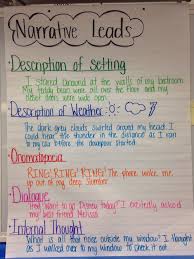 Narrative Leads
Description of Setting
I stared around at the walls of my bedroom.
My teddy bears were all over the floor and my
closet doors were wide open.
Description of Weather
The dark grey clouds swirled around my head. I could
hear the thunder in the distance as I ran to
my car before the downpour started.
Onomatopoeia
RING! RING! RING! The phone woke me
up out of my deep slumber.
Dialogue
"I want to go to Disney today!" I excitedly asked
my best friend Melissa.
Internal Thought
What is all that noise outside my window? I thought
as I walked over to my window to check it out.